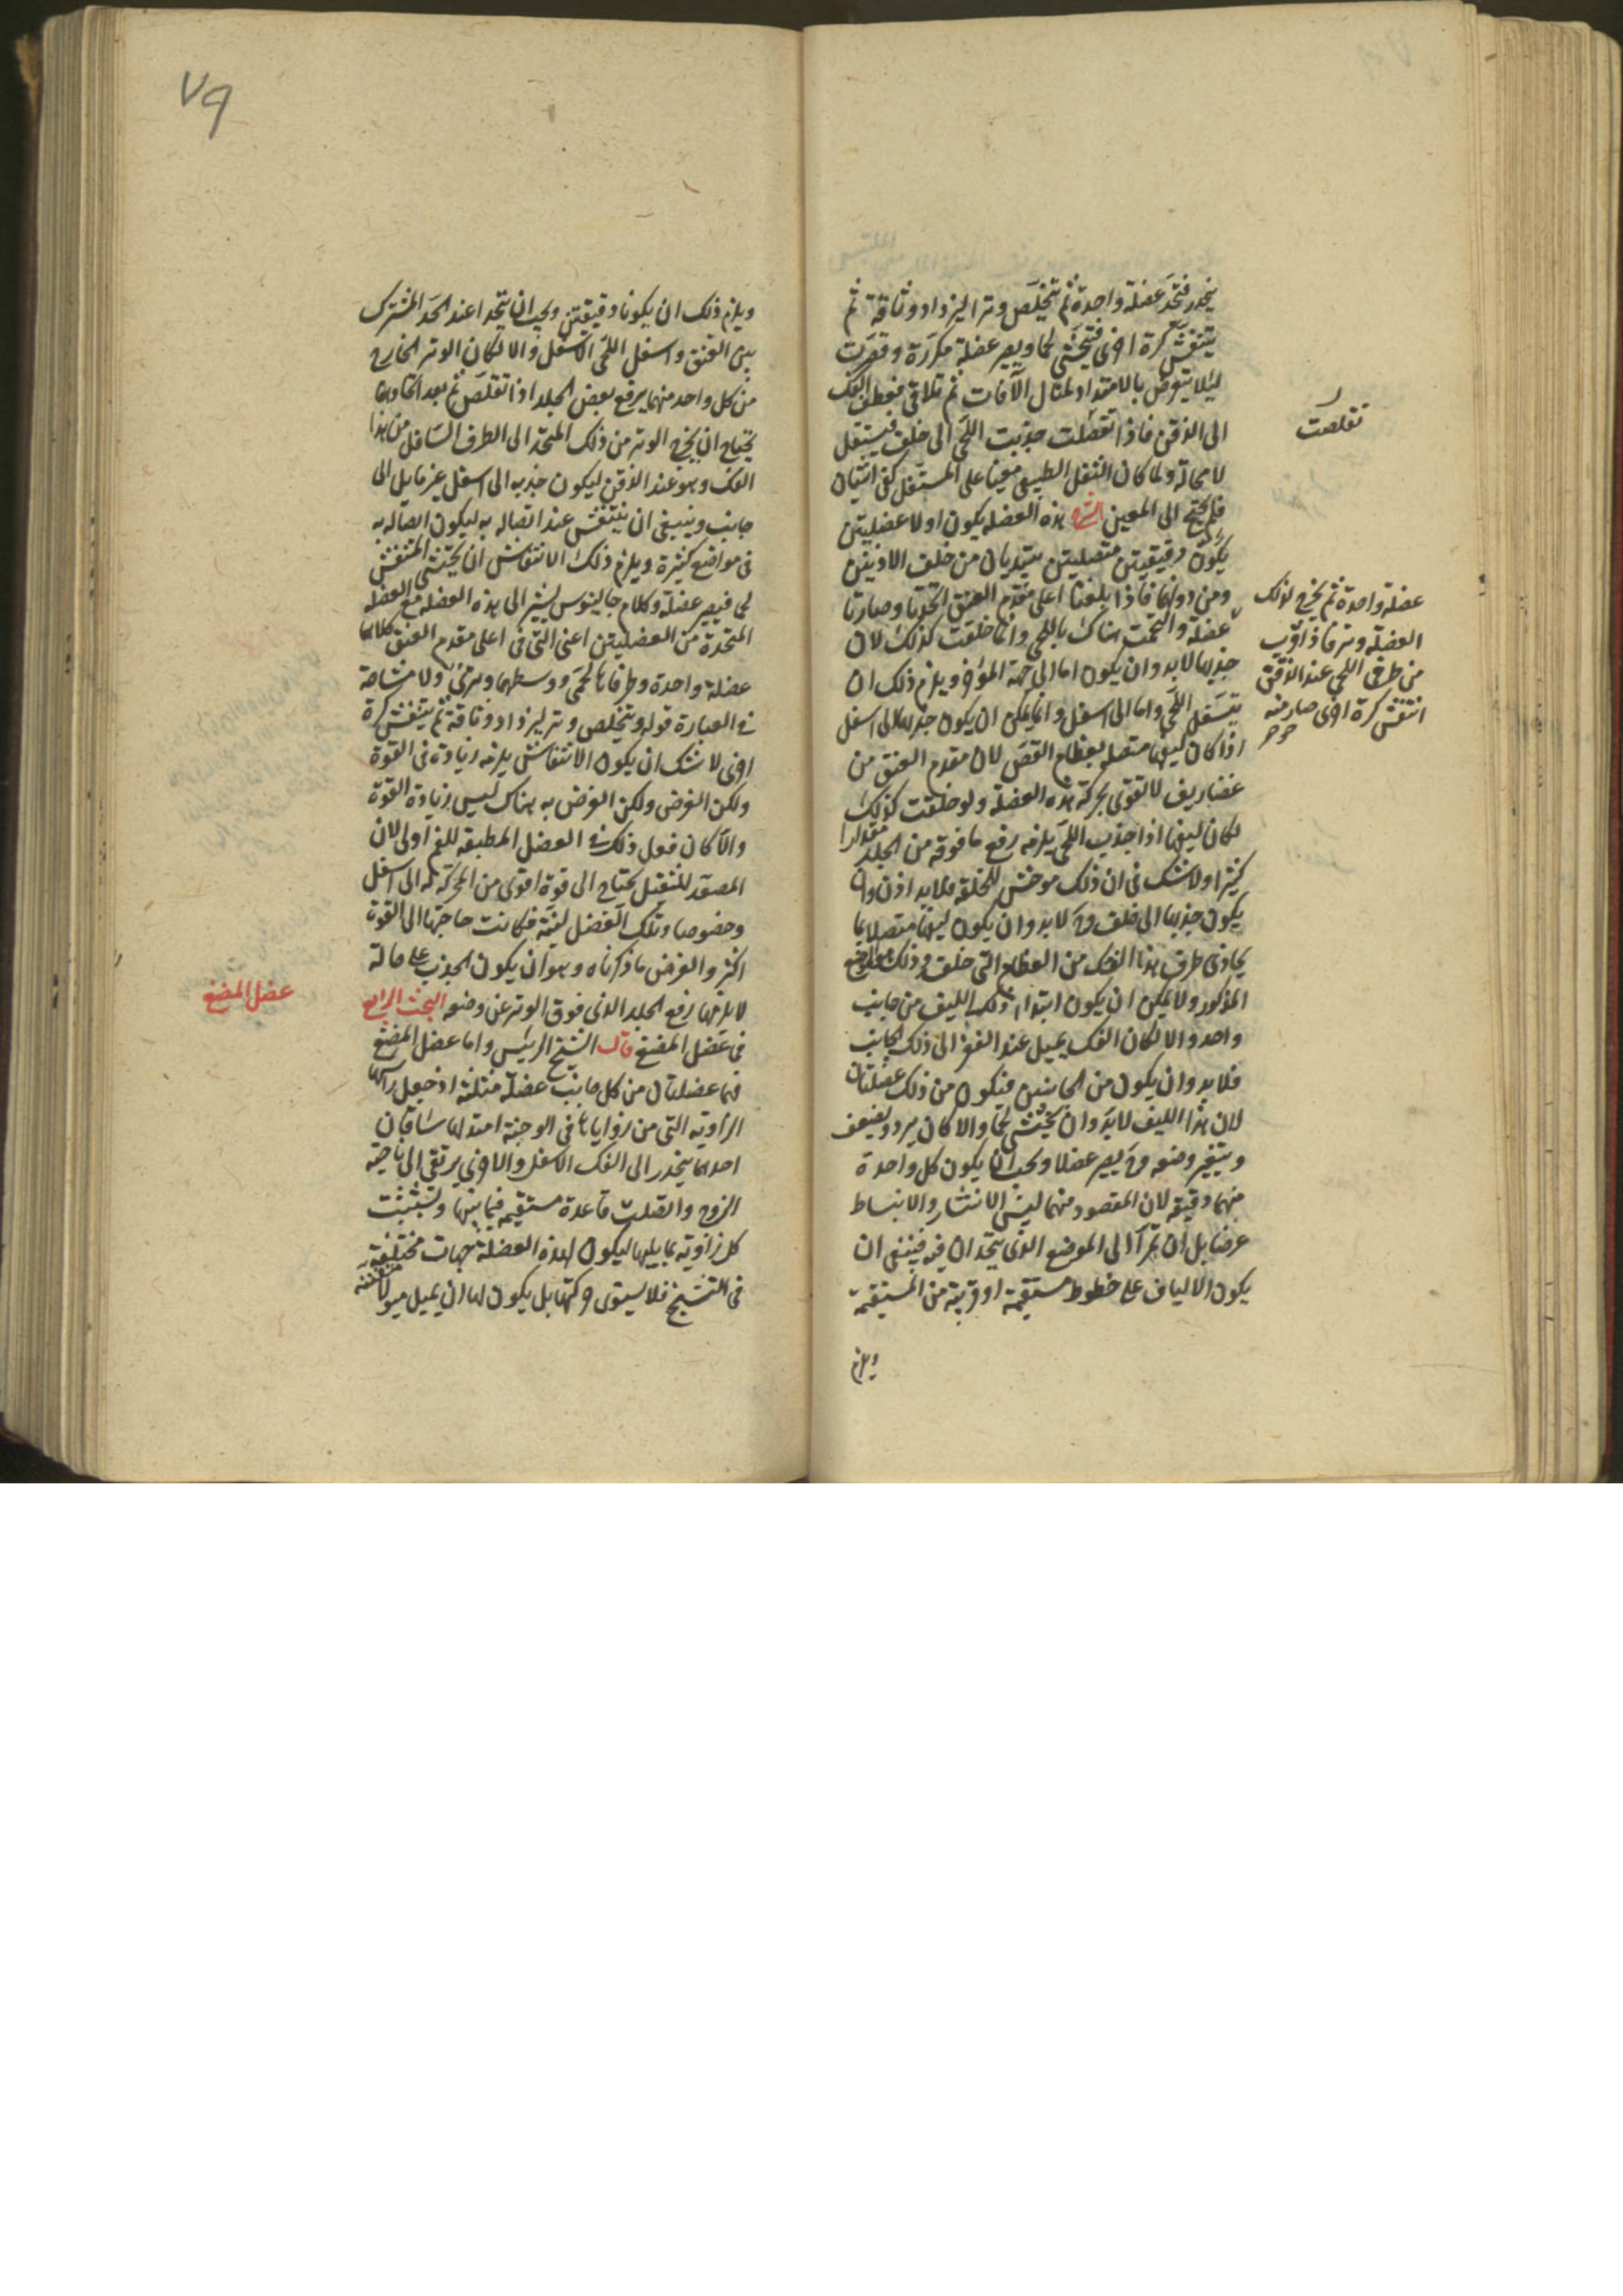 ينحدر فتتحد عضلة واحدة ثم تتخلص وترا ليزداد وثاقة ثم
يتنفش كرة اخرى فيحتشى لحما ويصير عضلة مكررة وقصرت
ليلا يتعرض بالامتداد لمنال الآفات ثم تلاقى معطف الفك
الى الذقن فاذا تقصلت جذبت اللحى الى خلف فيتسفل
لا محالة ولما كان الثقل الطبيعى معينا على التسفل كفى اثنتان
فلم يحتج الى المعين الشرح هذه العضلة يكون اولا عضلتين
يكون دقيقتين متصلتين يبتديان من خلف الاذنين
ومن دونهما فاذا بلغتا اعلى مقدم العنق اتحدتا وصارتا
عضلة والتحمت هناك باللحى وانما خلقت كذلك لان
جذبها لابد وان يكون اما الى جهة المؤخر ويلزم ذلك ان
يتسفل اللحى واما الى اسفل وانما يمكن ان يكون جذبها الى اسفل
اذا كان ليفها متصلا بعظام القص لان مقدم العنق من
غضاريف لا تقوى بحركة هذه العضلة ولو خلقت كذلك
لكان ليفها اذا جذب اللحى يلزمه رفع ما فوقه من الجلد مقدارا
كثيرا ولا شك فى ان ذلك موحش للخلقة فلابد اذن وان
يكون جذبها الى خلف وح لابد وان يكون ليفها متصلا بما
يحاذى طرف هذا الفك من العظام التى خلف وذلك الموضع
المذكور ولا يمكن ان يكون ابتداء ذلك الليف من جانب
واحد والا لكان الفك يميل عند الفغر الى ذلك الجانب
فلابد وان يكون من الجانبين فتكون من ذلك عضلتان
لان هذا الليف لابد وان يحتشى لحما والا كان يبرد ويضعف
ويتغير وضعه وح يصير عضلا ويجب ان يكون كل واحدة
منهما دقيقه لان المقصود منهما ليس الانتشار والانبساط
عرضا بل ان تمرا الى الموضع الذى يتحدان فيه فينبغى ان
يكون الالياف على خطوط مستقيمة او قريبة من المستقيمة
ويلزم
تقلصت
عضلة واحدة ثم يخرج لذلك
العضلة وتر فاذا قرب
من طرف اللحى عند الذقن
انتفش كرة اخرى صار منه
ويلزم ذلك ان يكونا دقيقتين ويجب ان يتحدا عند الحد المشترك
بين العنق واسفل اللحى الاسفل والا لكان الوتر الخارج
من كل واحد منهما يرفع بعض الجلد اذا تقلص ثم بعد اتحادهما
يحتاج ان يخرج الوتر من ذلك المتحد الى الطرف السافل من هذا
الفك وهو عند الذقن ليكون جذبه الى اسفل غير مايل الى
جانب وينبغى ان يتنفش عند اتصاله به ليكون اتصاله به
فى مواضع كثيرة ويلزم ذلك الانتفاش ان يحتشى المتنفش
لحما فيصير عضلة وكلام جالينوس يشير الى هذه العضله مع العضله
المتحدة من العضلتين اعنى التى فى اعلى مقدم العنق كلاهما
عضلة واحدة وطرفاها لحمى ووسطهما وترى ولا مشاحة
فى العبارة قوله ويتخلص وتر ليزداد وثاقة ثم يتنفش كرة
اخرى لا شك ان يكون الانتفاش يلزمه زيادة فى القوة
ولكن الغرض ولكن الغرض به هناك ليس زيادة القوة
والا كان فعل ذلك فى العضل المطبقه للفم اولى لان
المصعد للثقيل محتاج الى قوة اقوى من المحركة له الى اسفل
وخصوصا وتلك العضل لينة فكانت حاجتها الى القوة
اكثر والغرض ما ذكرناه وهو ان يكون الجذب على حالة
لا يلزمها رفع الجلد الذى فوق الوتر عن وضعه البحث الرابع
فى عضل المضغ قال الشيخ الرئيس واما عضل المضغ
فهما عضلتان من كل جانب عضلة مثلثة اذ جعل راسها
الزاوية التى من زواياها فى الوجنة امتد لها ساقان
احدهما ينحدر الى الفك الاسفل والاخرى يرتقى الى ناحية
الزوج واتصلت قاعدة مستقيمة فيما بينهما وتشبثت
كل زاوية بما يليها ليكون لهذه العضلة جهات مختلفة
فى التشنج فلا يستوى حركتها بل يكون لها ان يميل ميولا متفننه
عضل المضغ
٧٩